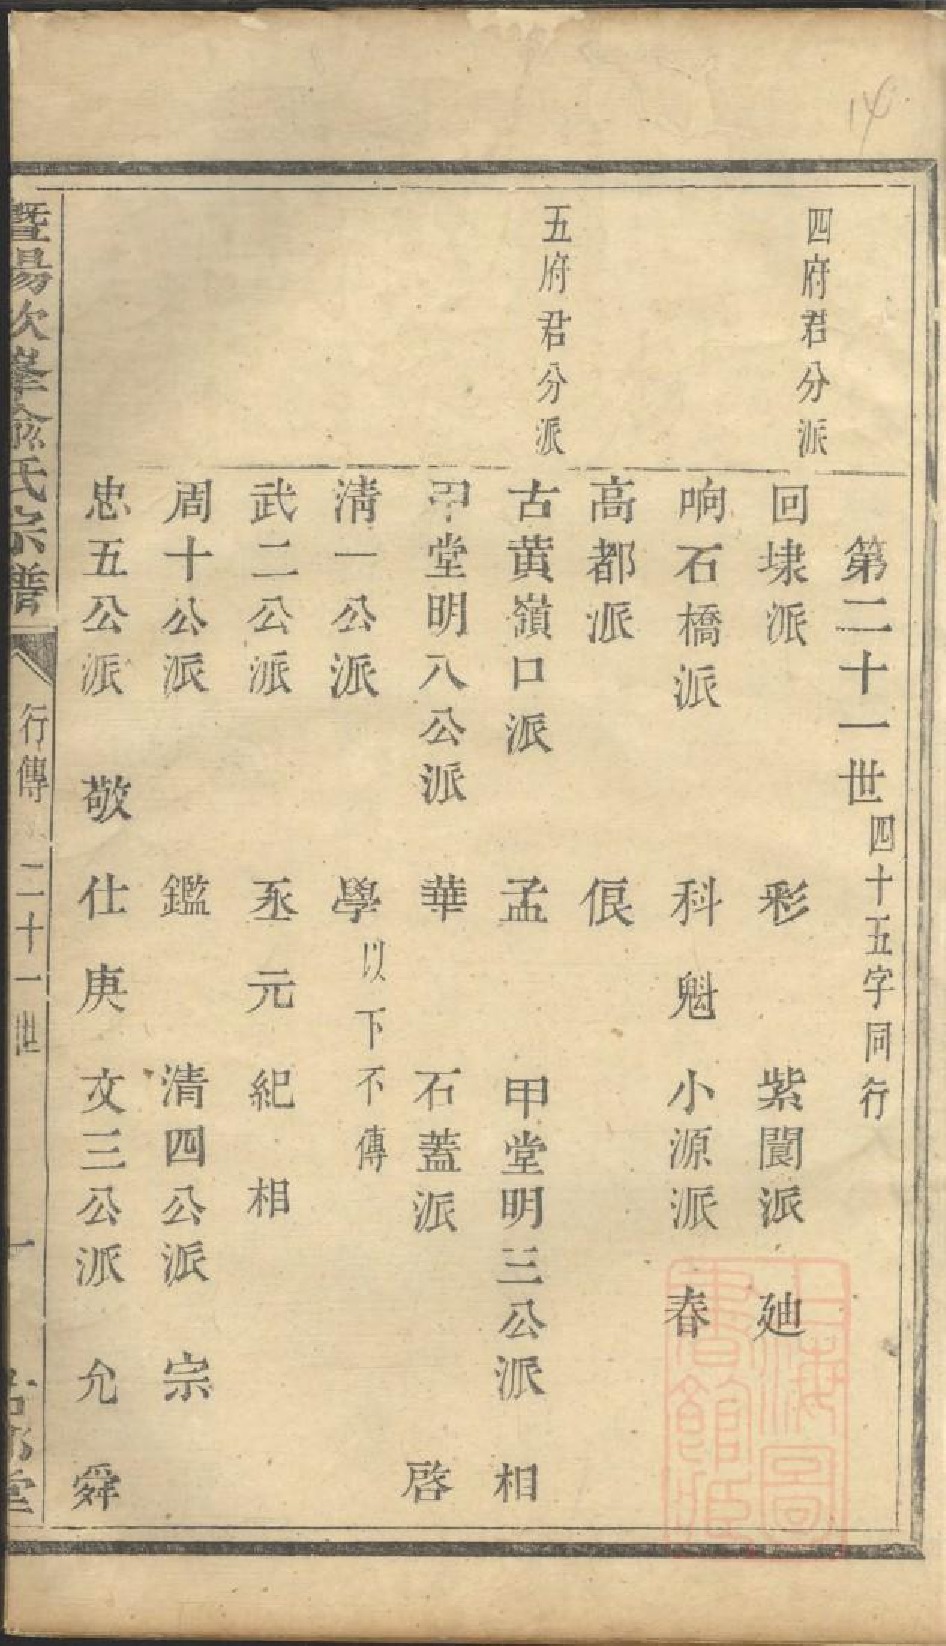 14
第二十一世 四十五字同行
四府君分派
回埭派 彩 紫閬派 廸
响石橋派 科 魁 小源派 春
高都派 佷
五府君分派
古黄嶺口派 孟 甲堂明三公派 相
甲堂明八公派 華 石蓋派 啓
清一公派 學 以下不傳
武二公派 丞 元 紀 相
周十公派 鑑 清四公派 宗
忠五公派 敬 仕 庚 文三公派 允 舜
暨陽次峯俞氏宗譜 行傳 二十一世 一
上海圖書館藏